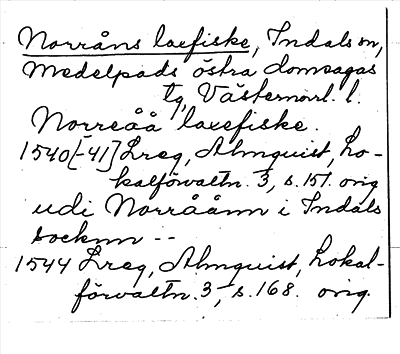 Norråns laxfiske, Indals sn,
Medelpads östra domsagas
tg, Västernorrl. l.
Norreåå laxefiske.
1540[-41] Lreg, Almquist, Lo-
kalförvaltn. 3, s. 151. orig
udi Norråånn i Indals
socknn --
1544 Lreg, Almquist, Lokal-
förvaltn. 3, s. 168. orig.